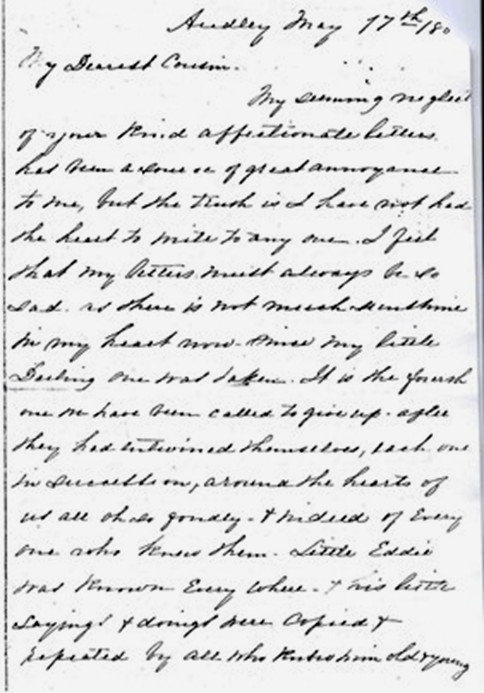 Audley May 17th /80
My Dearest Cousin.
My seeming neglect
of your kind affectionate letters
has been a source of great annoyance
to me, but the truth is I have not had
the heart to write to any one. I feel
that my letters must always be so
sad. as there is not much sunshine
in my heart now since my little
Darling one was taken. It is the fourth
one we have been called to give up. after
they had entwined themselves, each one
in succession, around the hearts of
us all oh so fondly. & indeed of Every
one who knew them. Little Eddie
was known Every where. & his little
Sayings & doings were Copied &
repeated by all who knew him old & young